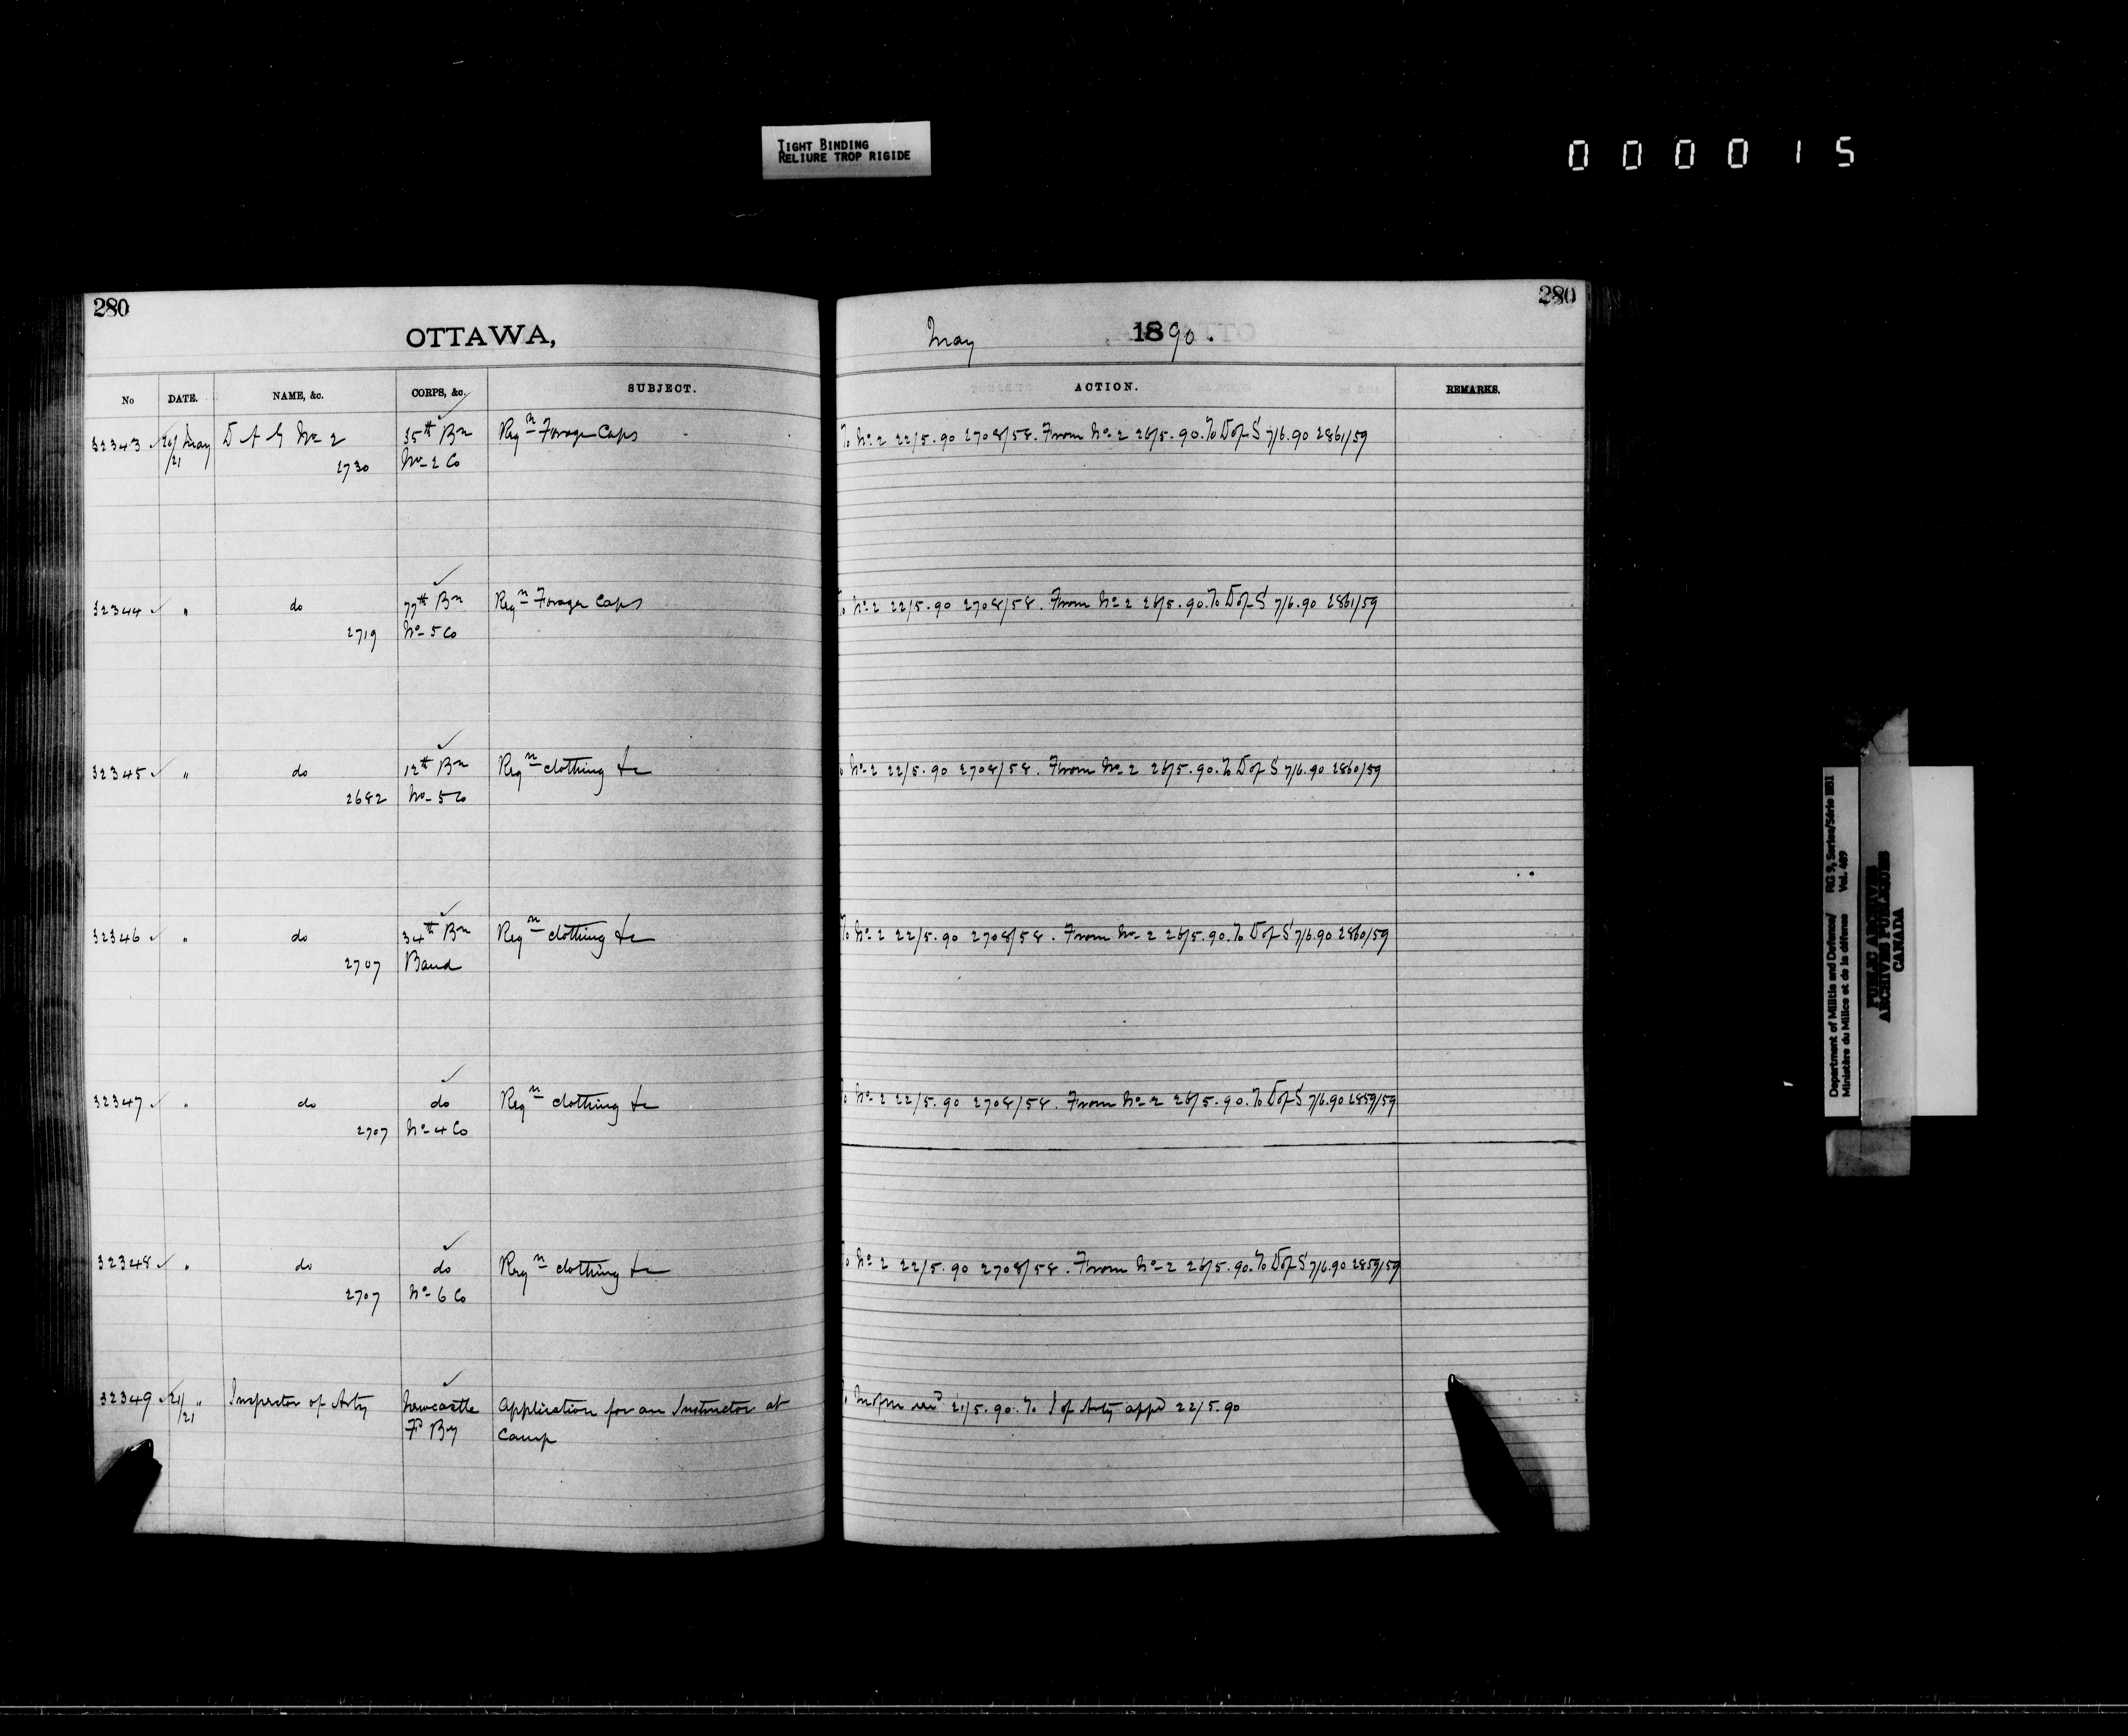 TIGHT BINDING
RELIURE TROP RIGIDE
000015
280
280
OTTAWA,
May 1890.
No DATE. NAME, &c. CORPS, &c. SUBJECT. ACTION. REMARKS.
32343 20/21 May D A G No 2 35th Bn Reqn Forage Caps To No 2 22/5.90 2708/58. From No 2 26/5.90. To D of S 7/6.90 2861/59
2730 No 2 Co
32344 " do 77th Bn Reqn Forage Caps To No 2 22/5.90 2708/58. From No 2 26/5.90. To D of S 7/6.90 2861/59
2719 No 5 Co
32345 " do 12th Bn Reqn clothing &c No 2 22/5.90 2708/58. From No 2 26/5.90. To D of S 7/6.90 2860/59
2682 No 5 Co
32346 " do 34th Bn Reqn clothing &c To No 2 22/5.90 2708/58. From No 2 26/5.90. To D of S 7/6.90 2860/59
2707 Band
32347 " do do Reqn clothing &c To No 2 22/5.90 2708/58. From No 2 26/5.90. To D of S 7/6.90 2859/59
2707 No 4 Co
32348 " do do Reqn clothing &c To No 2 22/5.90 2708/58. From No 2 26/5.90. To D of S 7/6.90 2859/59
2707 No 6 Co
32349 21/21 " Inspector of Arty Newcastle Application for an Instructor at 21/5.90. To I of Arty appd 22/5.90
Fd By Camp
Department of Militia and Defence/ RG 9, Series/Série IIB1
Ministère du Milice et de la défense Vol. 469
PUBLIC ARCHIVES
ARCHIVES PUBLIQUES
CANADA